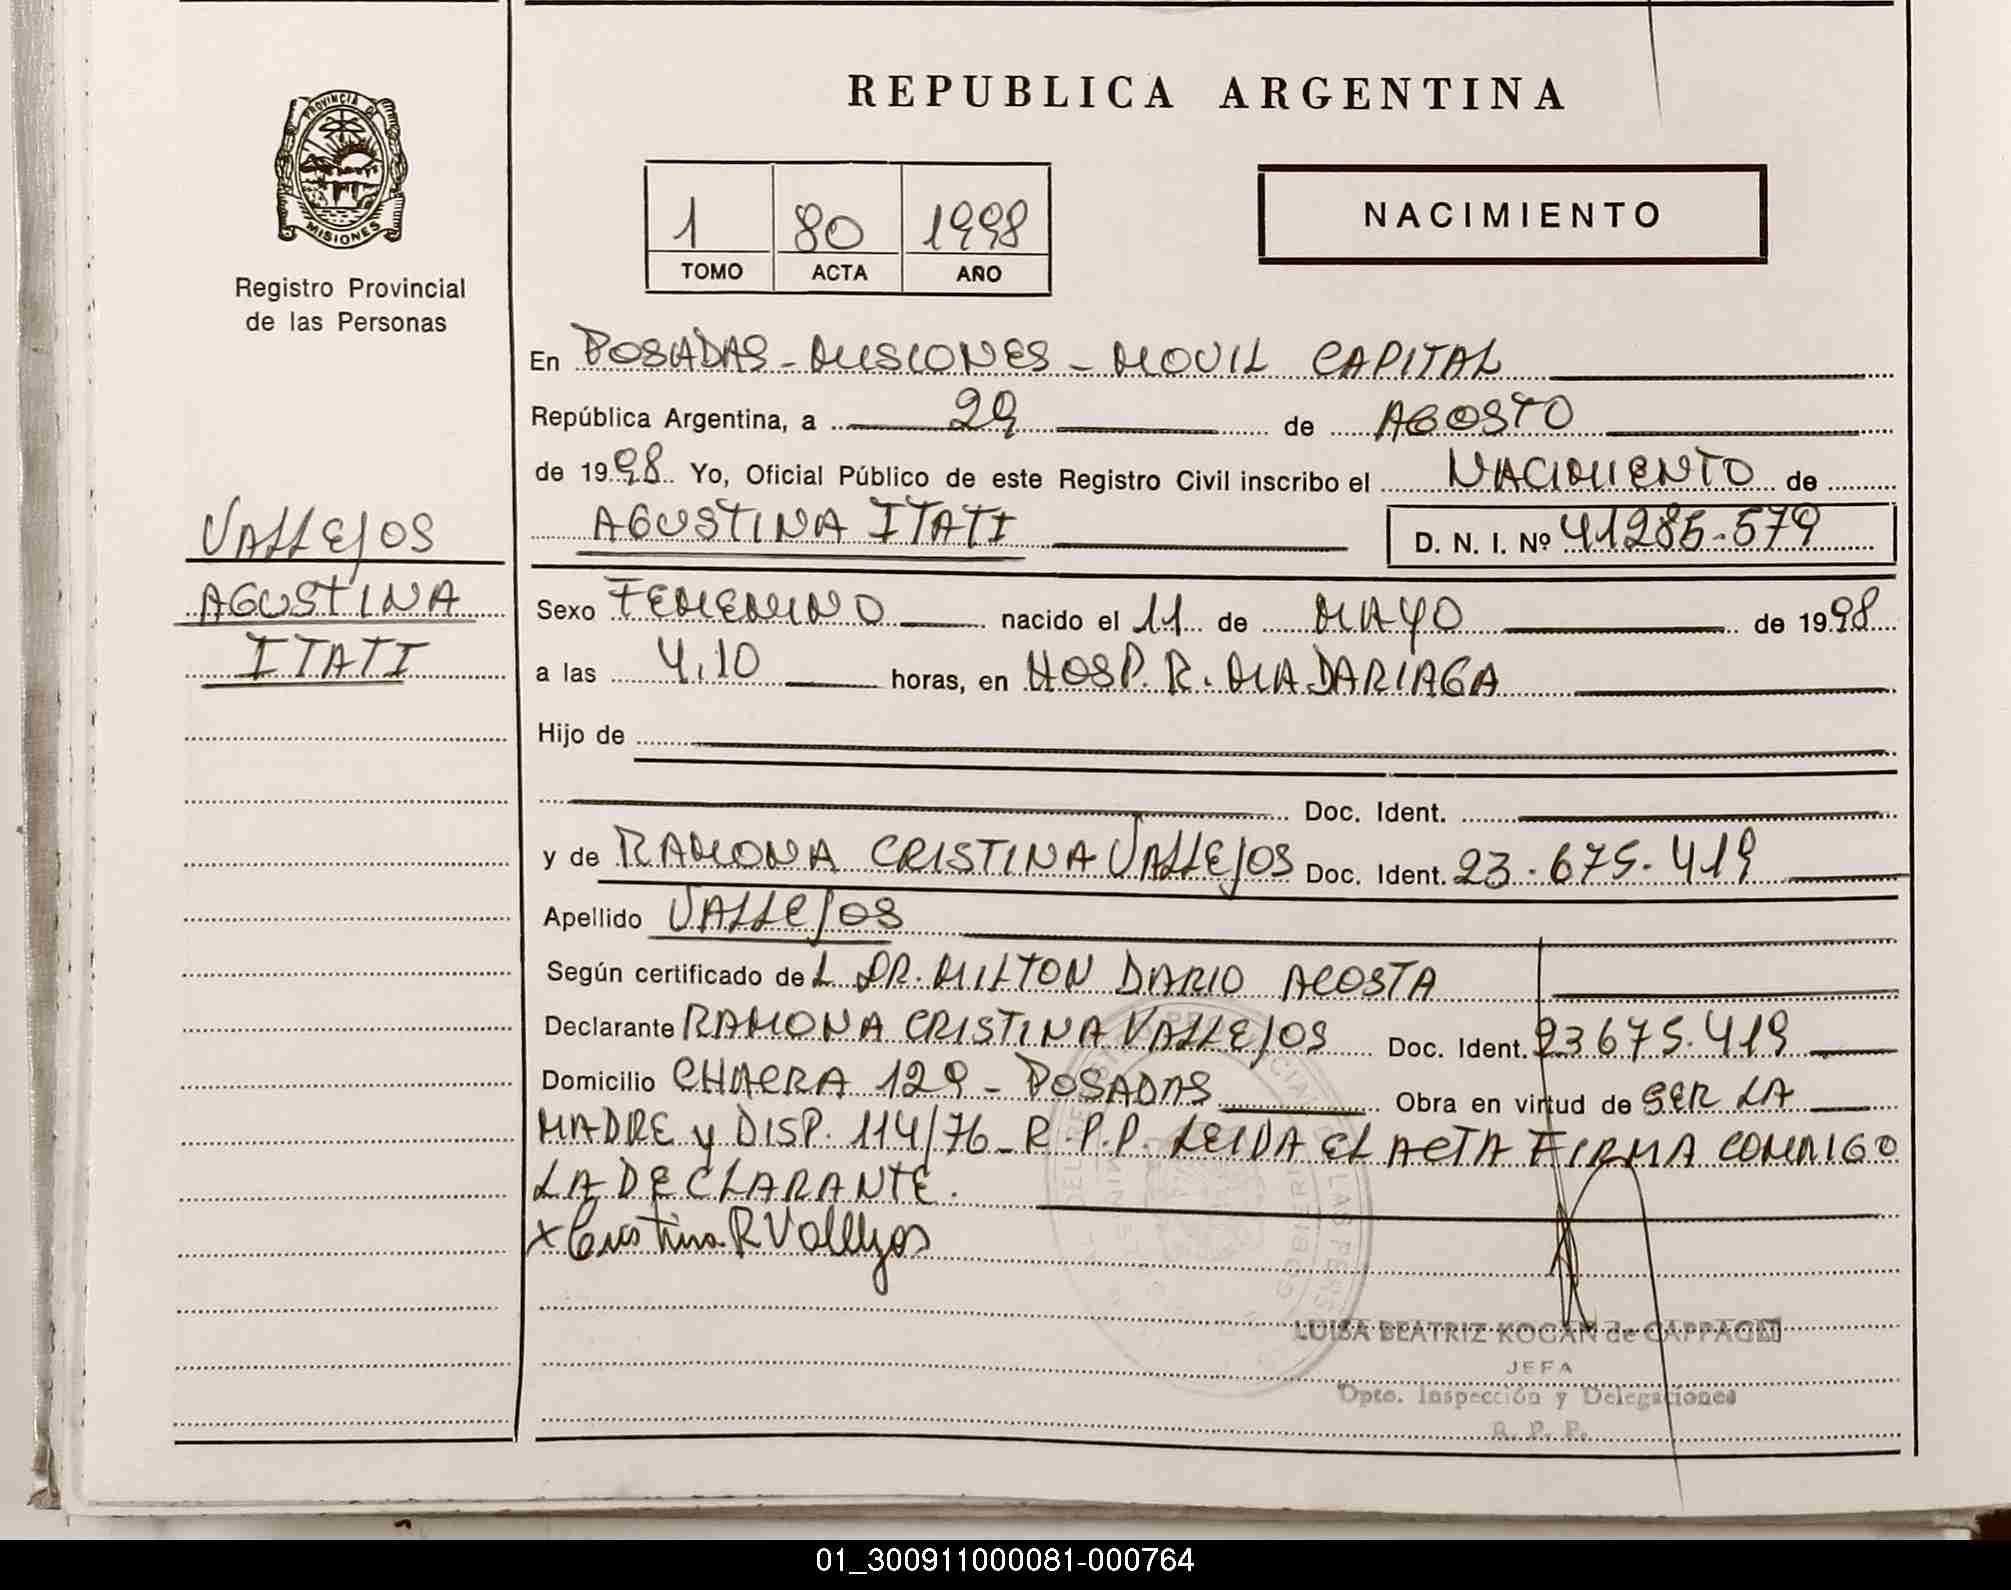 REPUBLICA ARGENTINA
PROVINCIA D
MISIONES
Registro Provincial
de las Personas
1 80 1998
TOMO ACTA AÑO
NACIMIENTO
En POSADAS - MISIONES - MOVIL CAPITAL
República Argentina, a 29 de AGOSTO
de 1998 Yo, Oficial Público de este Registro Civil inscribo el NACIMIENTO de
AGUSTINA ITATI D. N. I. Nº 41285.579
VALLEJOS
AGUSTINA
ITATI
Sexo FEMENINO nacido el 11 de MAYO de 1998
a las 4,10 horas, en HOSP. R. MADARIAGA
Hijo de
Doc. Ident.
y de RAMONA CRISTINA VALLEJOS Doc. Ident. 23.675.419
Apellido VALLEJOS
Según certificado de L DR. MILTON DARIO ACOSTA
Declarante RAMONA CRISTINA VALLEJOS Doc. Ident. 23675.419
Domicilio CHACRA 129 - POSADAS Obra en virtud de SER LA
MADRE y DISP. 114/76 - R.P.P. LEIDA EL ACTA FIRMA CONMIGO
LA DECLARANTE.
x Cristina R Vallejos
LUISA BEATRIZ KOGAN de CAPPAGLI
JEFA
Dpto. Inspección y Delegaciones
R. P. P.
01_300911000081-000764